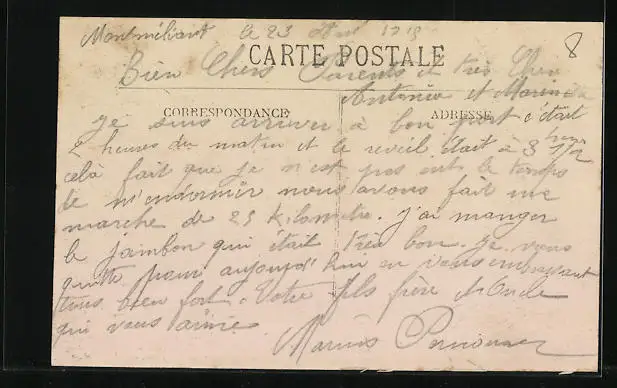 Montméliant le 23 1915
8
CARTE POSTALE
Bien Chers Parents et très Cher
Antonia et Marius
CORRESPONDANCE
ADRESSE
Je suis arriver à bon port c'était
2 heures du matin et le reveil était à 3 heures 1/2
celà fait que je n'est pas eut le temps
de m'endormir nous avons fait une
marche de 25 Kilomètre. j'ai manger
le jambon qui était très bon. je vous
quitte pour aujourd'hui en vous embrassant
tous bien fort. Votre fils frère et Oncle
qui vous aime
Marius